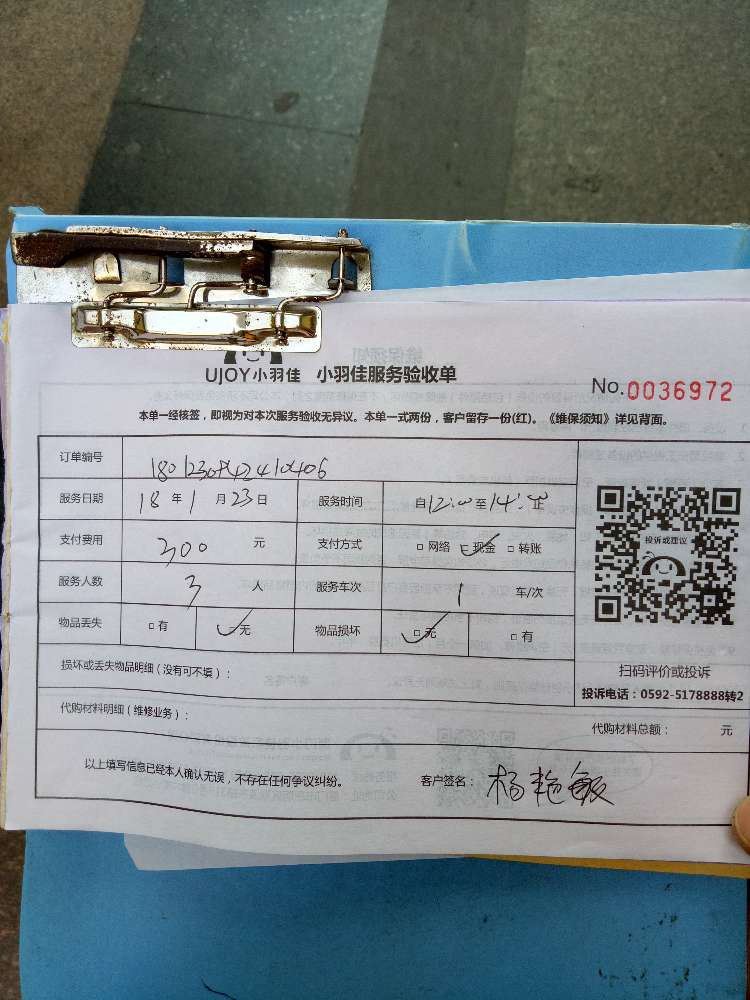 UJOY小羽佳 小羽佳服务验收单
No.0036972
本单一经核签，即视为对本次服务验收无异议。本单一式两份，客户留存一份(红)。《维保须知》详见背面。
订单编号
服务日期 18年1月23日 服务时间 自12:00至14:止
支付费用 300 元 支付方式 □网络 ☑现金 □转账
服务人数 3 人 服务车次 1 车/次
物品丢失 □有 ☑无 物品损坏 ☑无 □有
损坏或丢失物品明细（没有可不填）：
代购材料明细（维修业务）：
代购材料总额： 元
以上填写信息已经本人确认无误，不存在任何争议纠纷。 客户签名：杨艳敏
投诉或建议
扫码评价或投诉
投诉电话：0592-5178888转2